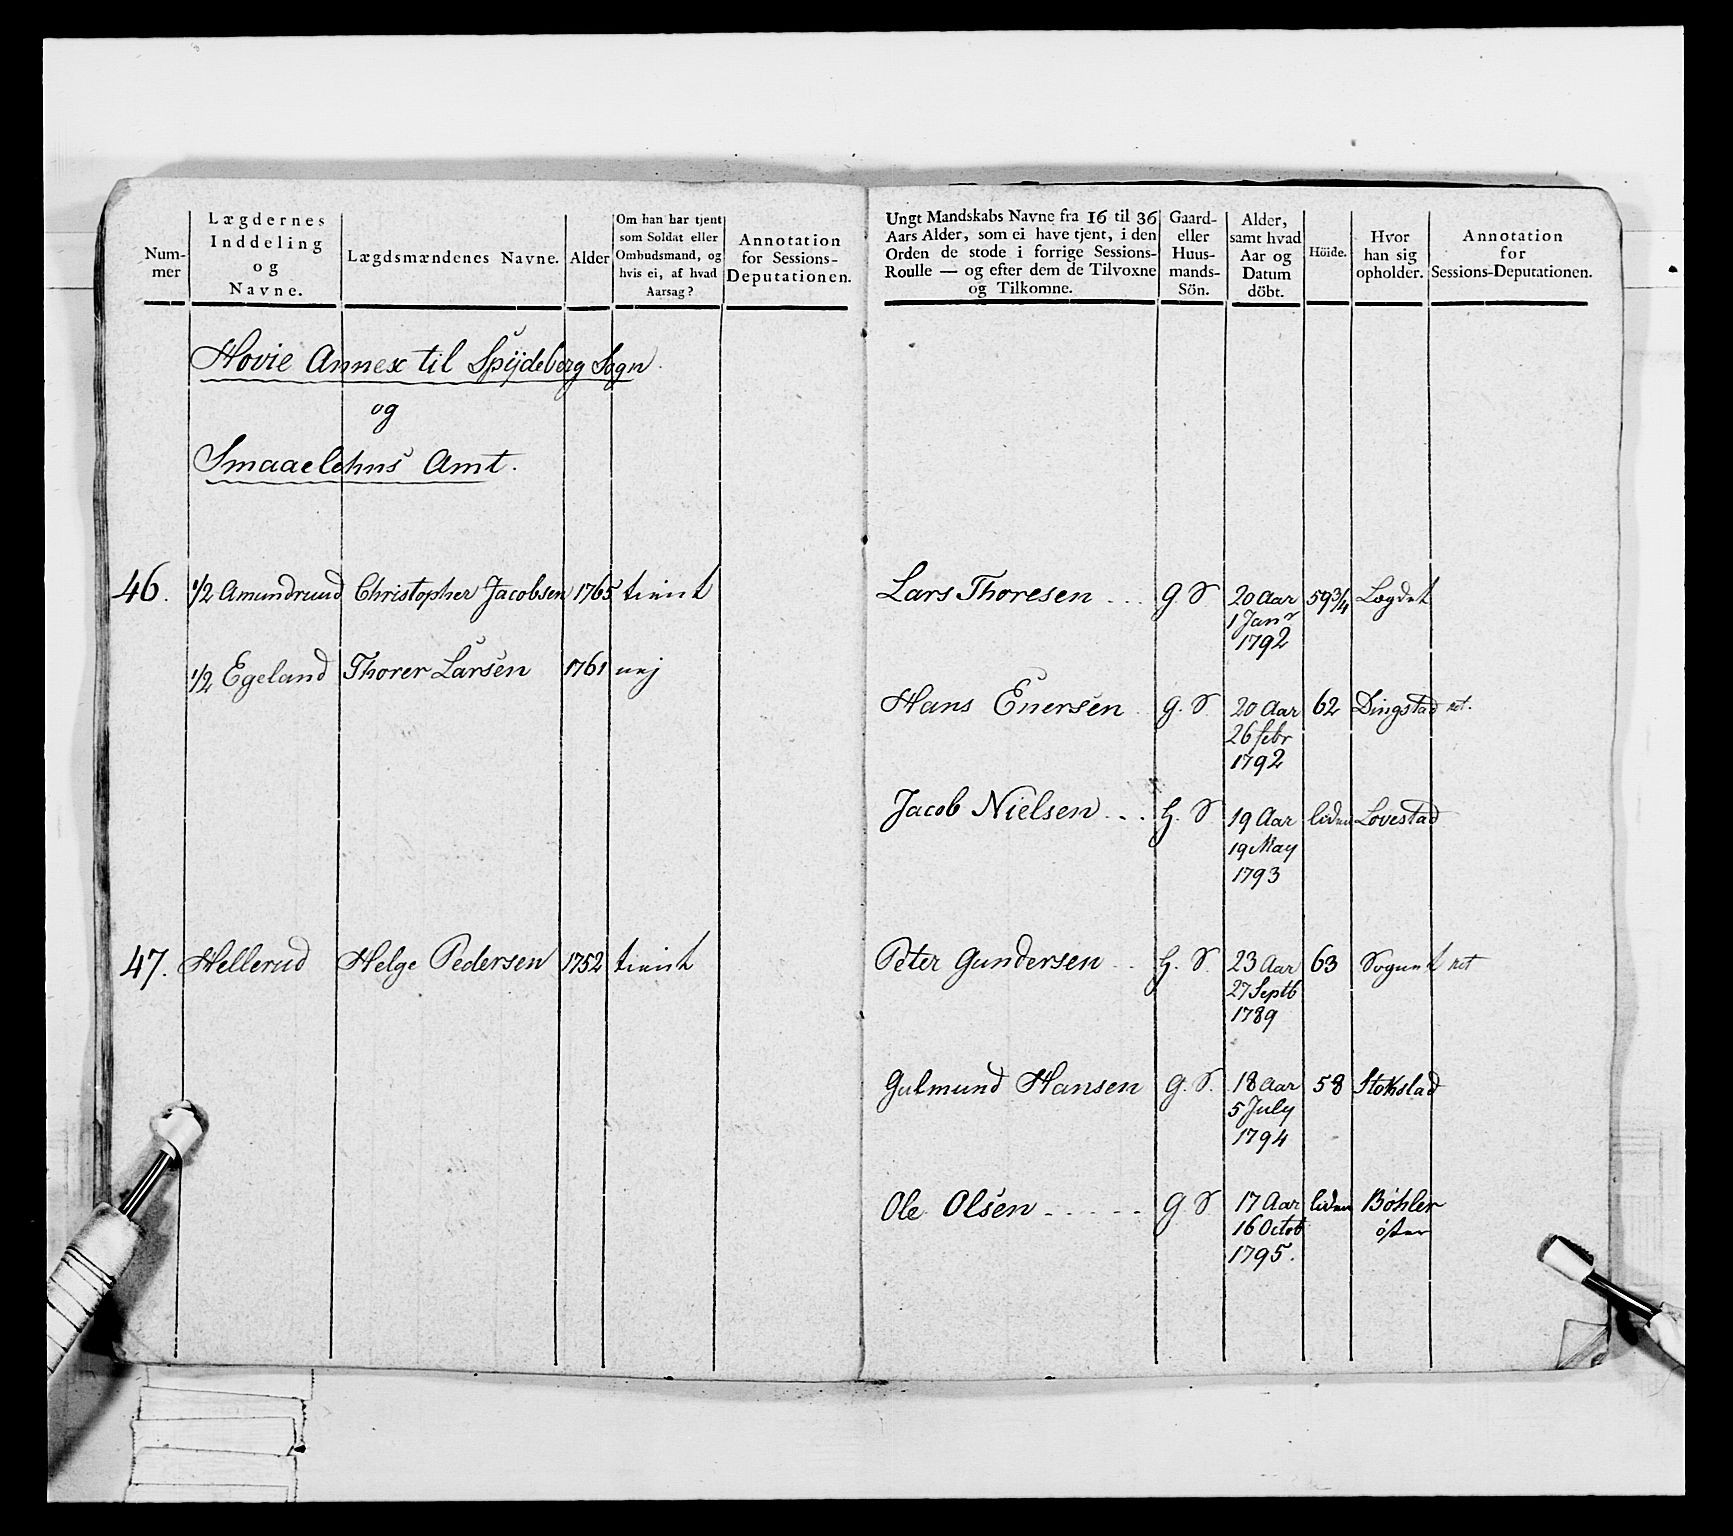 Num-
mer
Lægdernes
Inddeling
og
Navne.
Lægdsmændenes Navne.
Alder
Om han har tjent
som Soldat eller
Ombudsmand, og
hvis ei, af hvad
Aarsag?
Annotation
for Sessions-
Deputationen.
Hovie Annex til Spÿdeberg Sogn
og
Smaaelehns Amt.
46. 1/2 Amundruud Christopher Jacobsen 1765 tient
1/2 Egeland Thorer Larsen 1761 nej
47. Hellerud Helge Pedersen 1752 tient
Ungt Mandskabs Navne fra 16 til 36
Aars Alder, som ei have tjent, i den
Orden de stode i forrige Sessions-
Roulle — og efter dem de Tilvoxne
og Tilkomne.
Gaard-
eller
Huus-
mands-
Sön.
Alder,
samt hvad
Aar og
Datum
döbt.
Höide.
Hvor
han sig
opholder.
Annotation
for
Sessions-Deputationen.
Lars Thoresen ... G. S. 20 Aar 59 3/4 Lægdet
1 Janr
1792
Hans Enersen . G. S. 20 Aar 62 Dingstad
26 febr
1792
Jacob Nielsen ... H. S 19 Aar liden Lovestad
19 May
1793
Peter Gundersen .. H. S. 23 Aar 63 Sognet
27 Septb
1789
Gulmund Hansen G. S. 18 Aar 58 Stokstad
5 July
1794
Ole Olsen ...... G S 17 Aar liden Bøhler
16 Octob øster
1795.